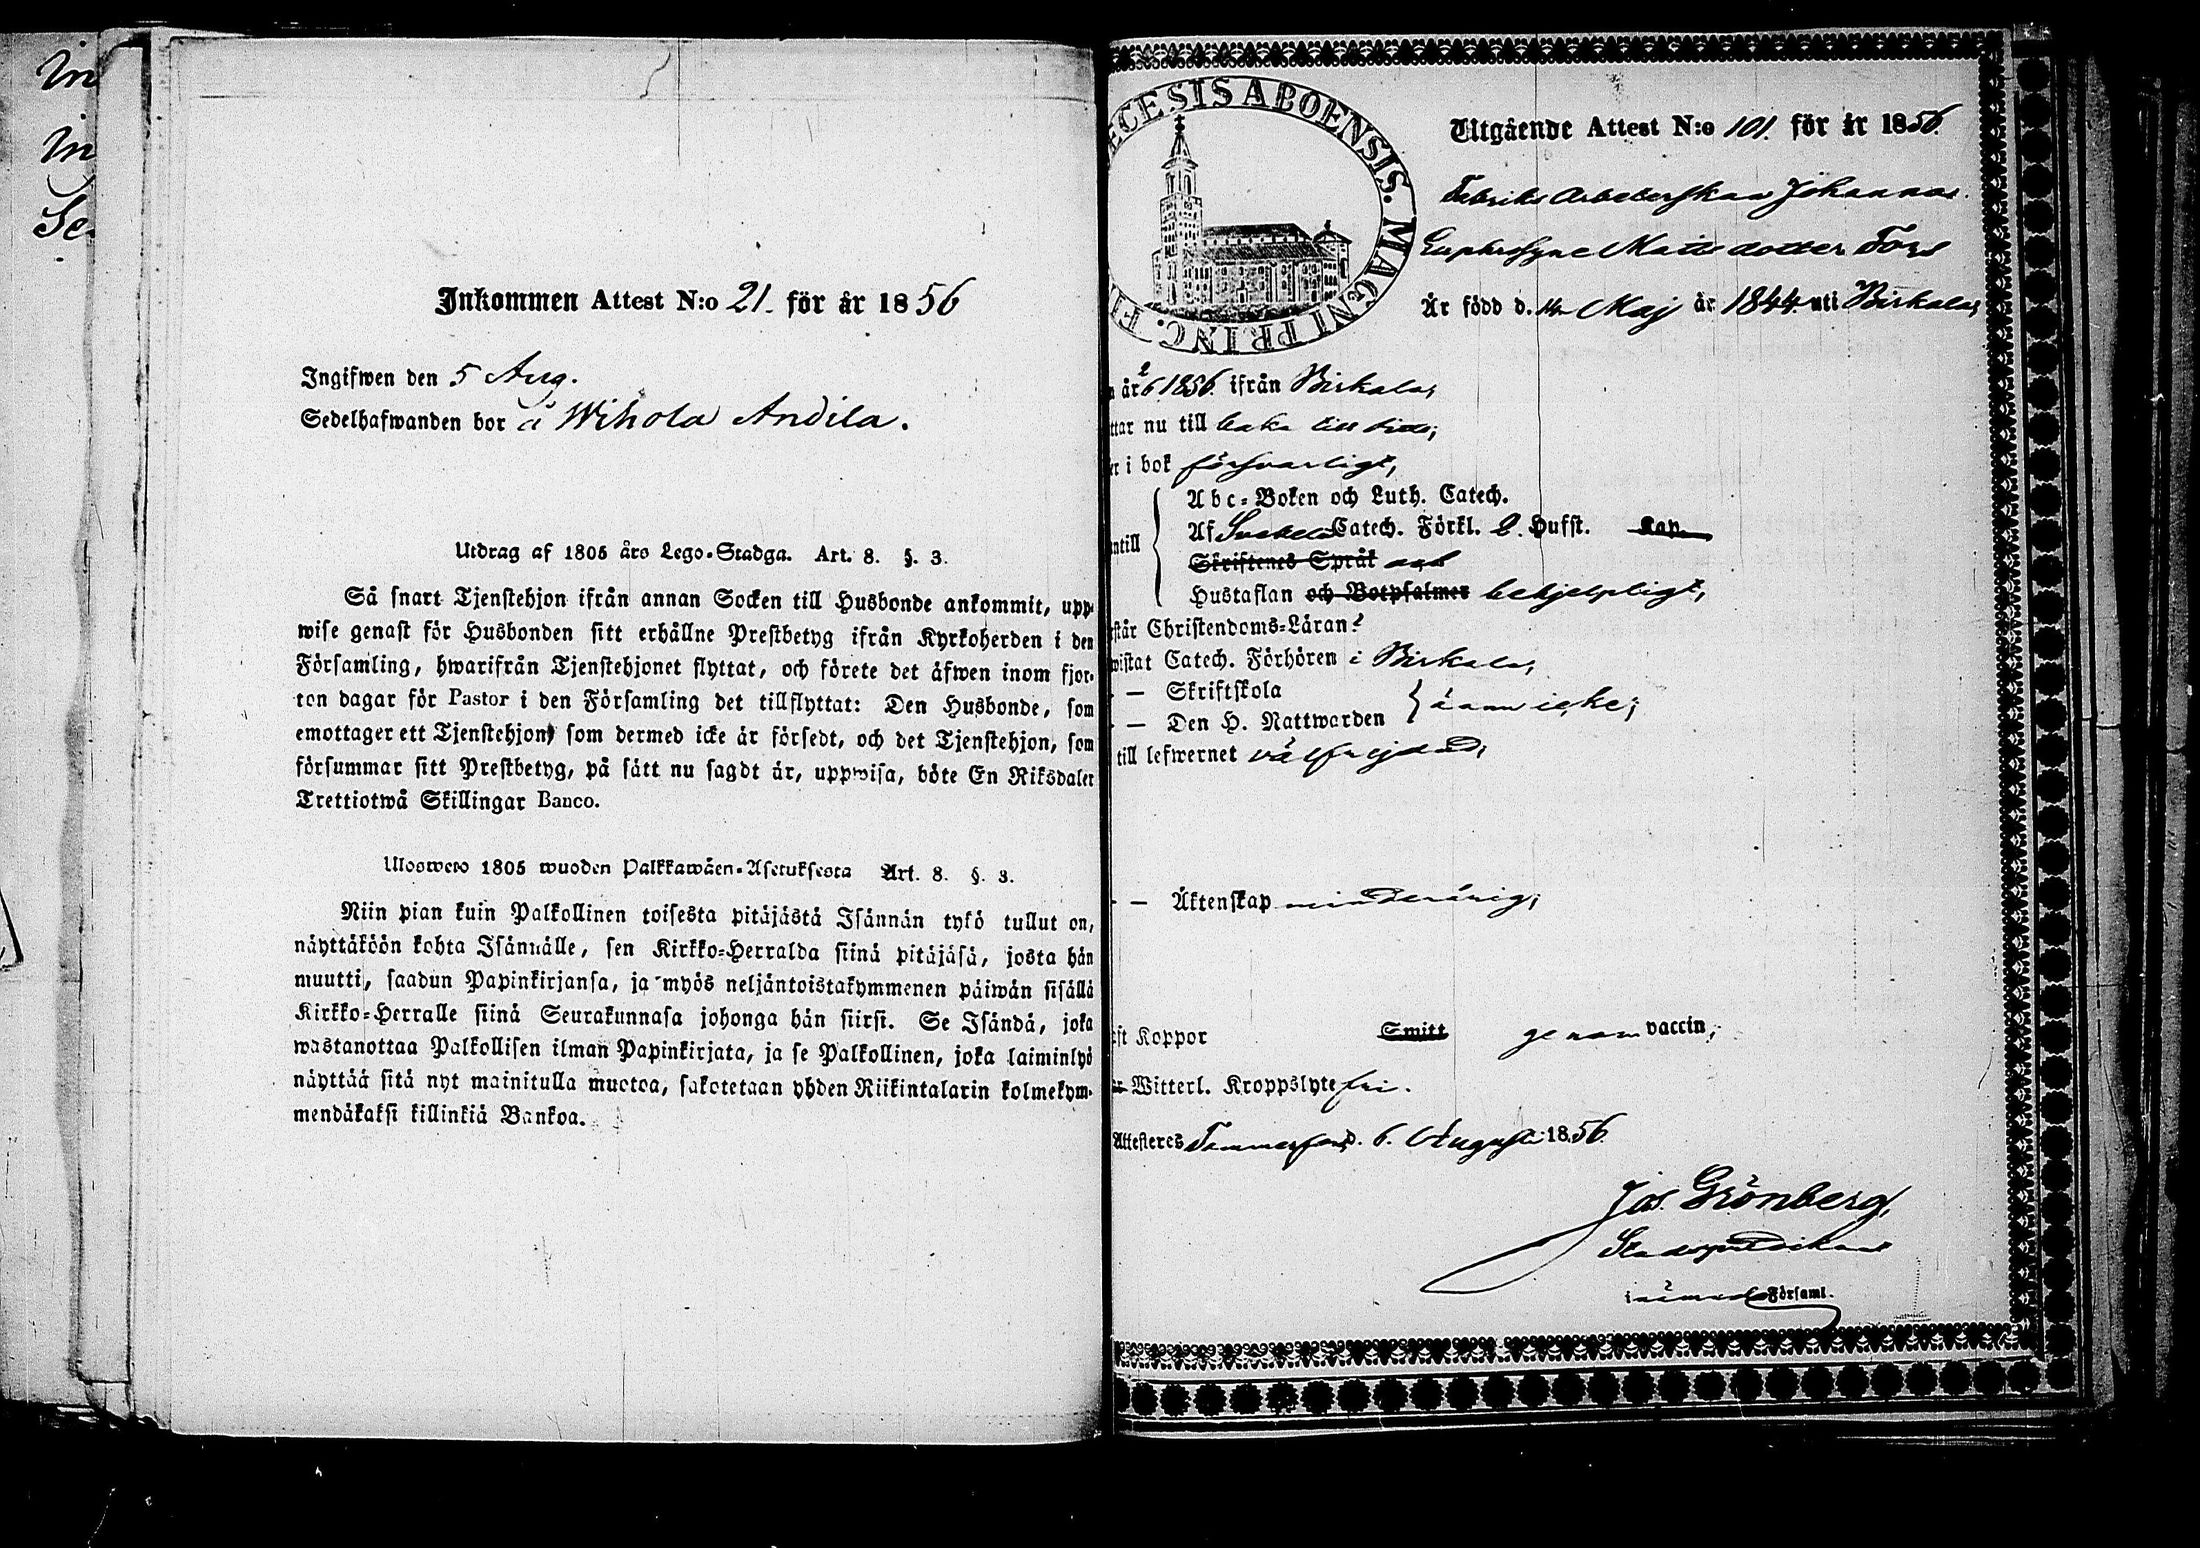 In
In
Se
Inkommen Attest N:o 21. för år 1856
Ingifwen den 5 Aug.
Sedelhafwanden bor å Wihola Andila.
Utdrag af 1805 års Lego-Stadga. Art. 8. §. 3.
Så snart Tjenstehjon ifrån annan Socken till Husbonde ankommit, upp-
wise genast för Husbonden sitt erhållne Prestbetyg ifrån Kyrkoherden i den
Församling, hwarifrån Tjenstehjonet flyttat, och förete det äfwen inom fjor-
ton dagar för Pastor i den Församling det tillflyttat: Den Husbonde, som
emottager ett Tjenstehjon, som dermed icke är försedt, och det Tjenstehjon, som
försummar sitt Prestbetyg, på sätt nu sagdt är, uppwisa, böte En Riksdaler
Trettiotwå Skillingar Banco.
Ulosweto 1805 wuoden Palkkawäen-Asetuksesta Art. 8. §. 3.
Niin pian kuin Palkollinen toisesta pitäjästä Isännän tykö tullut on,
näyttäköön kohta Isännälle, sen Kirkko-Herralda siinä pitäjäsä, josta hän
muutti, saadun Papinkirjansa, ja myös neljäntoistakymmenen päiwän sisällä
Kirkko-Herralle siinä Seurakunnasa johonga hän siirsi. Se Isändä, joka
wastanottaa Palkollisen ilman Papinkirjata, ja se Palkollinen, joka laiminlyö
näyttää sitä nyt mainitulla muotoa, sakotetaan yhden Riikintalarin kolmekym-
mendäkaksi killinkiä Bankoa.
ECESIS ABOENSIS. MAGNI PRINC. FI
Utgående Attest N:o 101. för år 1856.
Fabriks Arbeterskan Johanna
Euphrosyne Matts dotter Fors
Är född d. 14 Maj år 1844 uti Birkala,
n år 2/6 1856. ifrån Birkala,
ttar nu till baka till dito;
er i bok försvarligt,
Abc-Boken och Luth. Catech.
Af Svebelii Catech. Förkl. 2. Hufst. Kap.
antill
Skriftenes Språk och
Hustaflan och Botpsalmer behjelpligt,
rstår Christendoms-Läran?
wistat Catech. Förhören i Birkala,
— Skriftskola
— Den H. Nattwarden } ännu icke;
till lefwernet välfrejdad,
— Äktenskap minderårig;
ft Koppor Smitt genom vaccin;
Witterl. Kroppslyte fri.
Attesteres Tammerfors d. 6. Augusti 1856.
Jos. Grönberg,
Stadspredikant
i nämnde Församl.